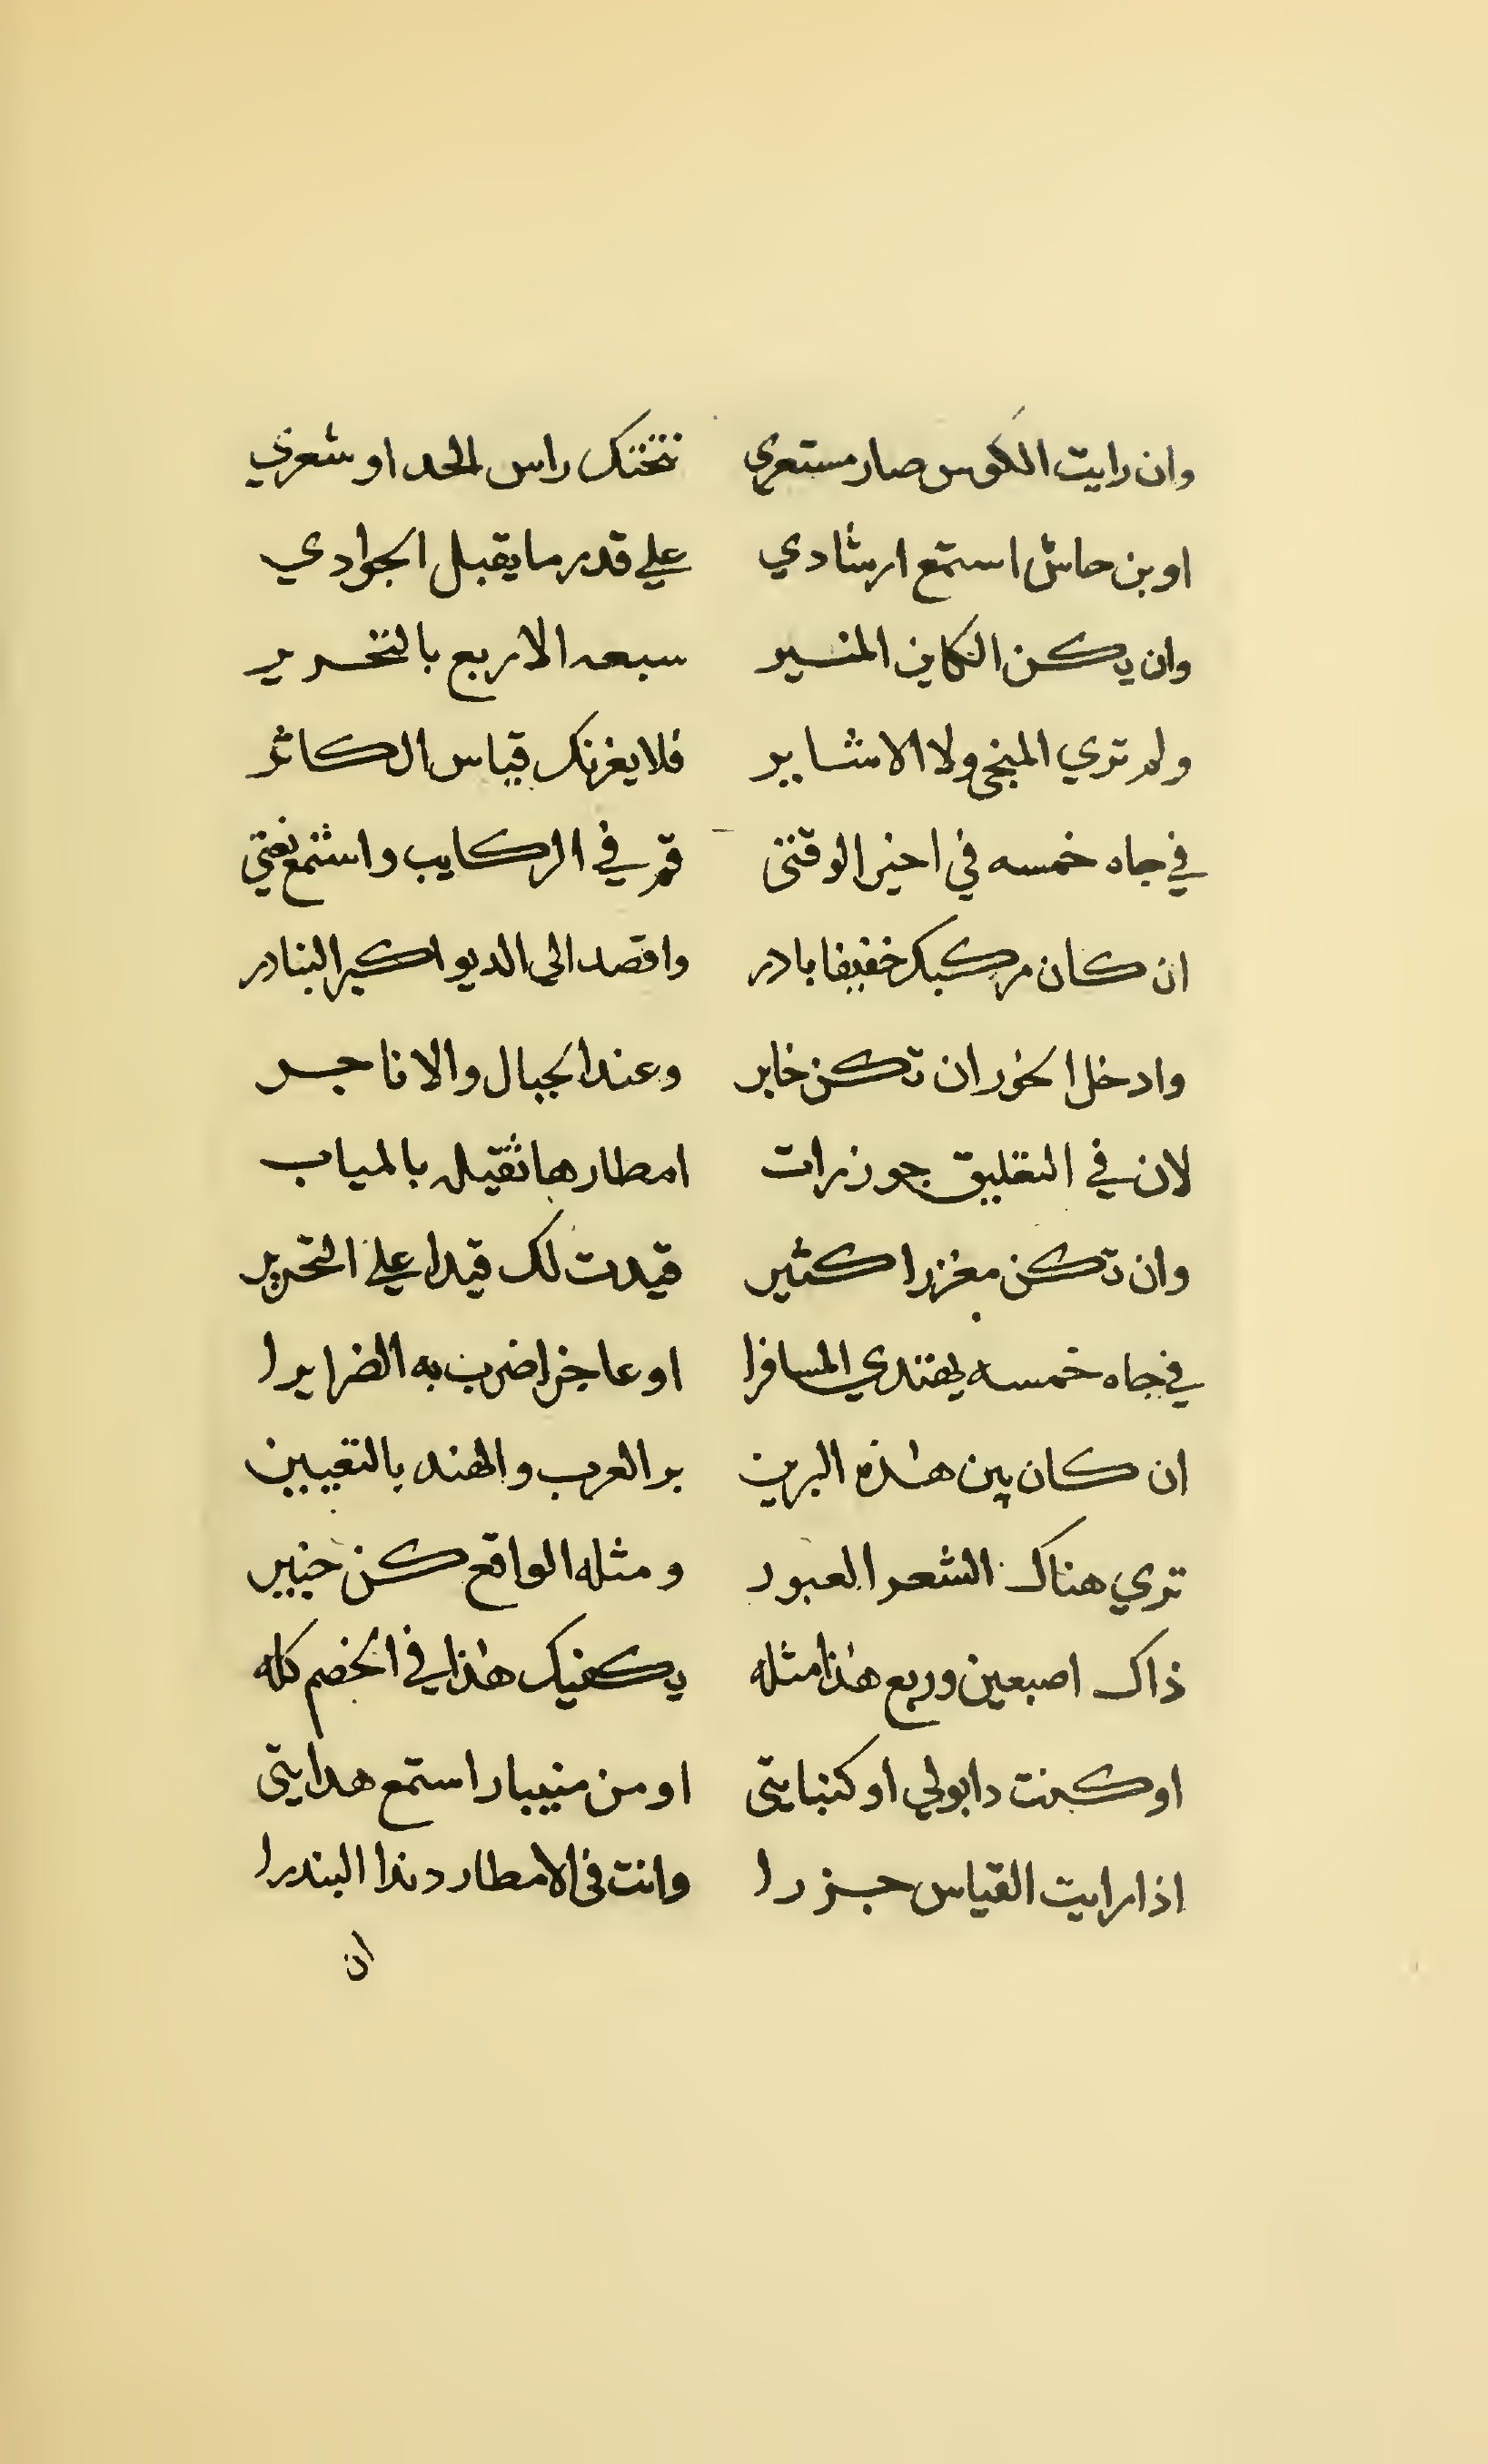 وان رايت الكوس صار مستعري نتختك راس الحد او شعري
او بن حاش استمع ارشادي علي قدر ما يقبل الجوادي
وان يكن الكافي المنسير سبعه الاربع بالتحرير
ولم تري المنجي ولا الاشاير فلا يغرنك قياس الكاثر
في جاه خمسه في اخير الوقتي قم في الركايب واستمع نعتي
ان كان مركبك خفيفا بادر واقصد الي الديو اكبر البنادر
وادخل الخور ان تكن خابر وعند الجبال والاناجر
لان في التغليق جوزرات امطارها ثقيله بالمياب
وان تكن مغزرا كثير قيدت لك قيدا علي التحرير
في جاه خمسه يهتدي المسافرا او عاجز اضرب به الضرايرا
ان كان بين هذه البرين بر العرب والهند بالتعيين
تري هناك الشعر العبور ومثله الواقع كن خبير
ذاك اصبعين وربع هذا مثله يكفيك هذا في الخضم كله
او كنت دابولي او كنبايتي او من منيبار استمع هدايتي
اذا رايت القياس جزرا وانت في الامطار دندا البندرا
ان